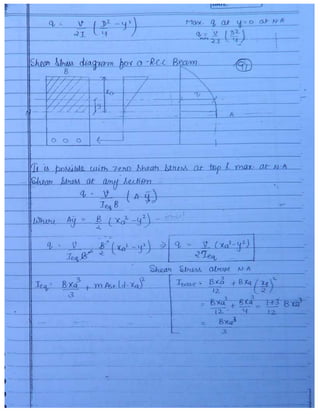 q = V/2I (D²/4 - y²)
Max. q at y=0 at NA
q = V/2I (D²/4)
Shear stress diagram for a RCC Beam
B
xa
y
q
A
o o o
It is parabola with zero shear stress at top & max at NA
Shear stress at any section
q = V/(Ieq B) (A ȳ)
Where Aȳ = B/2 (xa² - y²)
q = V/(Ieq B) B/2 (xa² - y²) ⇒ q = V/2Ieq (xa² - y²)
Shear Stress above NA
Ieq = Bxa³/3 + m Ast (d - xa)²
= Bxa³/12 + Bxa (xa/2)²
= Bxa³/12 + Bxa³/4 = 1+3/12 Bxa³
= Bxa³/3